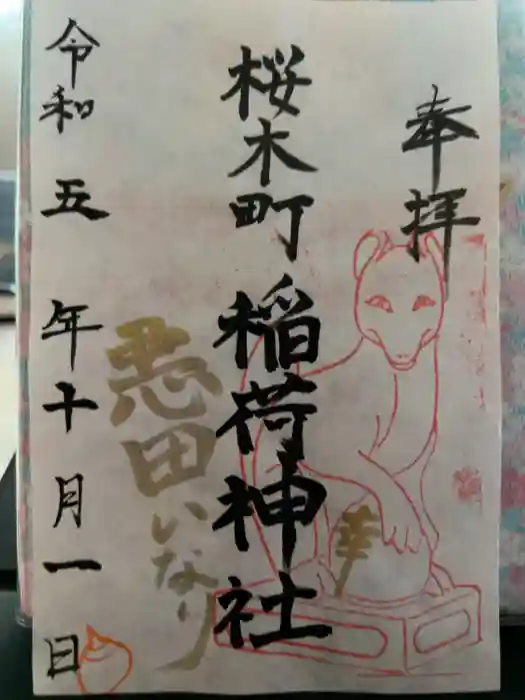 奉拝
桜木町稲荷神社
惡田いなり
令和五年十月一日